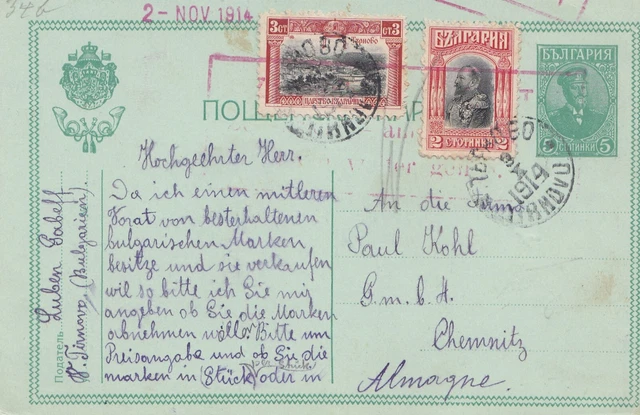 346
2- NOV 1914
3 СТ СТ 3
ТЪРНОВО
БЪЛГАРИЯ
2 СТОТИНКИ 2
БЪЛГАРИЯ
СТОТИНКИ 5
ПОЩЕ
КАР
Hochgeehrter Herr.
Da ich einen mitleren
Vorat von besterhaltenen
bulgarischen Marken
besitze und sie verkaufen
wil so bitte ich Sie mir
angeben ob Sie die Marken
abnehmen wolls? Bitte um
Preisangabe und ob Sie die
marken in (Stück) oder in
per Stück
An die Firma
Paul Kohl
G.m.b.H.
Chemnitz
Almagne.
Податель
Luben Gabeff
V. Tirnovo, (Bulgarien)
1914